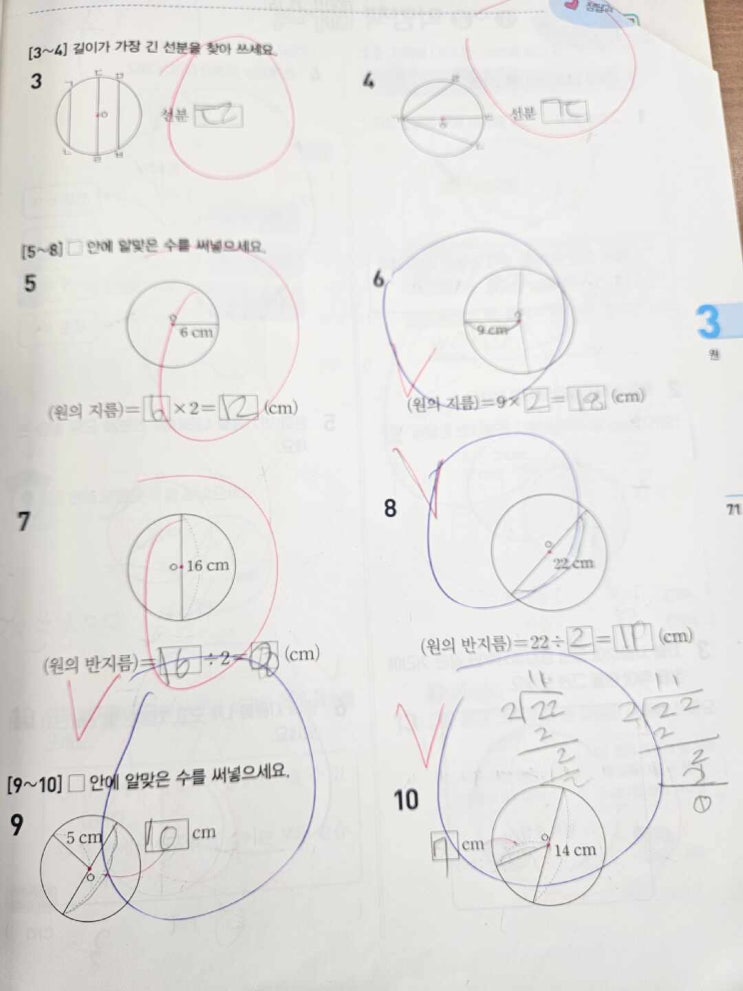 정답과
[3~4] 길이가 가장 긴 선분을 찾아 쓰세요.
3
ㄱ ㄷ ㅁ
ㅇ
선분 ㄷㄹ
ㄴ ㄹ ㅂ
4
ㄹ
ㄱ
ㅇ
ㄷ
선분 ㄱㄷ
ㄴ
[5~8] □ 안에 알맞은 수를 써넣으세요.
5
ㅇ
6 cm
(원의 지름)=6×2=12(cm)
6
ㅇ
9 cm
(원의 지름)=9×2=18(cm)
3
원
7
ㅇ
16 cm
(원의 반지름)=16÷2=8(cm)
8
ㅇ
22 cm
(원의 반지름)=22÷2=11(cm)
71
11
2 22
2
2
2
11
2 22
2
2
2
0
[9~10] □ 안에 알맞은 수를 써넣으세요.
9
5 cm
ㅇ
10 cm
10
7 cm
ㅇ
14 cm